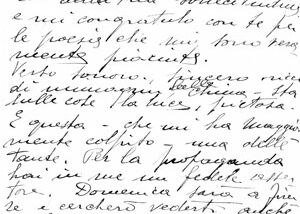 e mi congratulo con te per
le poesie che mi sono vera
mente piaciute.
Verso sonoro, sincero, ricco
di immagini, scelta - sta
sulle cose la luce, pietosa.
E questa - che mi ha maggior
mente colpito - una delle
tante. Per la propaganda
hai in me un fedele asser
tore. Domenica sarò a Firen
ze e cercherò vederti, anche